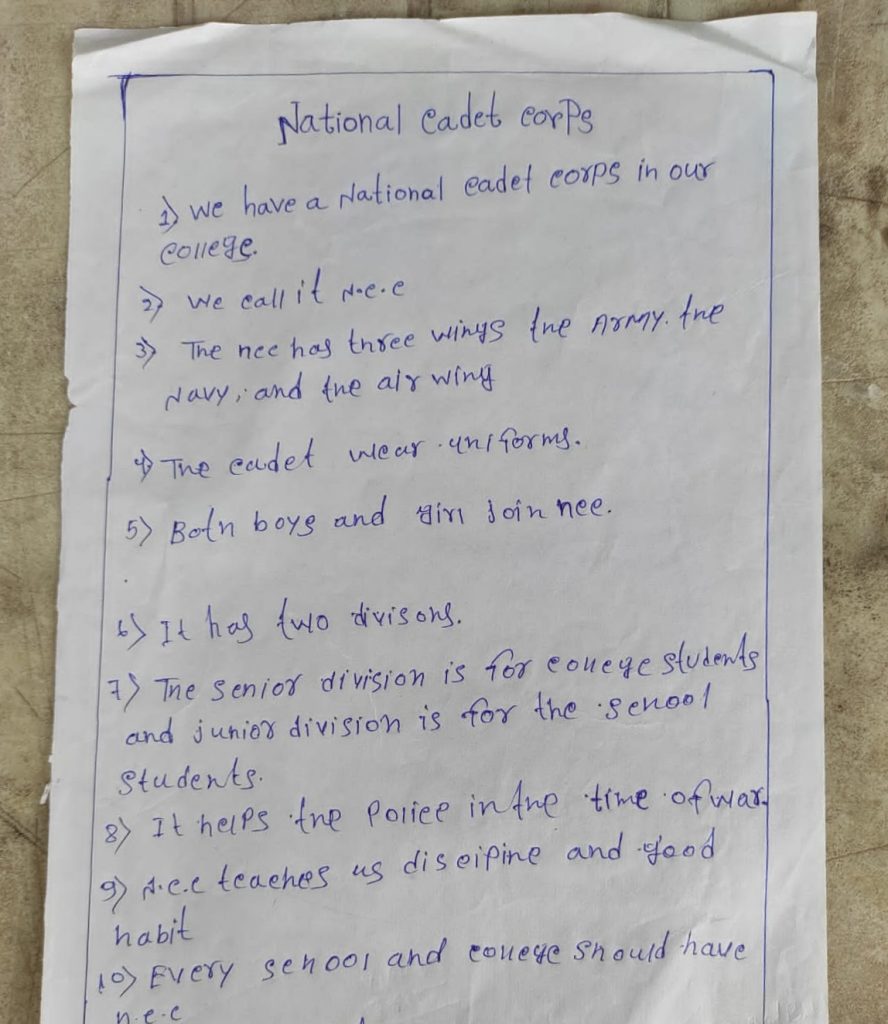 National Cadet Corps
1) We have a National cadet corps in our
College.
2) We call it N.C.C
3) The ncc has three wings the Army. the
Navy, and the air wing
4) The cadet wear uniforms.
5) Both boys and girl Join ncc.
6) It has two divisons.
7) The senior division is for college students
and junior division is for the school
students.
8) It helps the Police in the time of war.
9) N.c.c teaches us discipine and good
habit
10) Every school and college should have
n.c.c